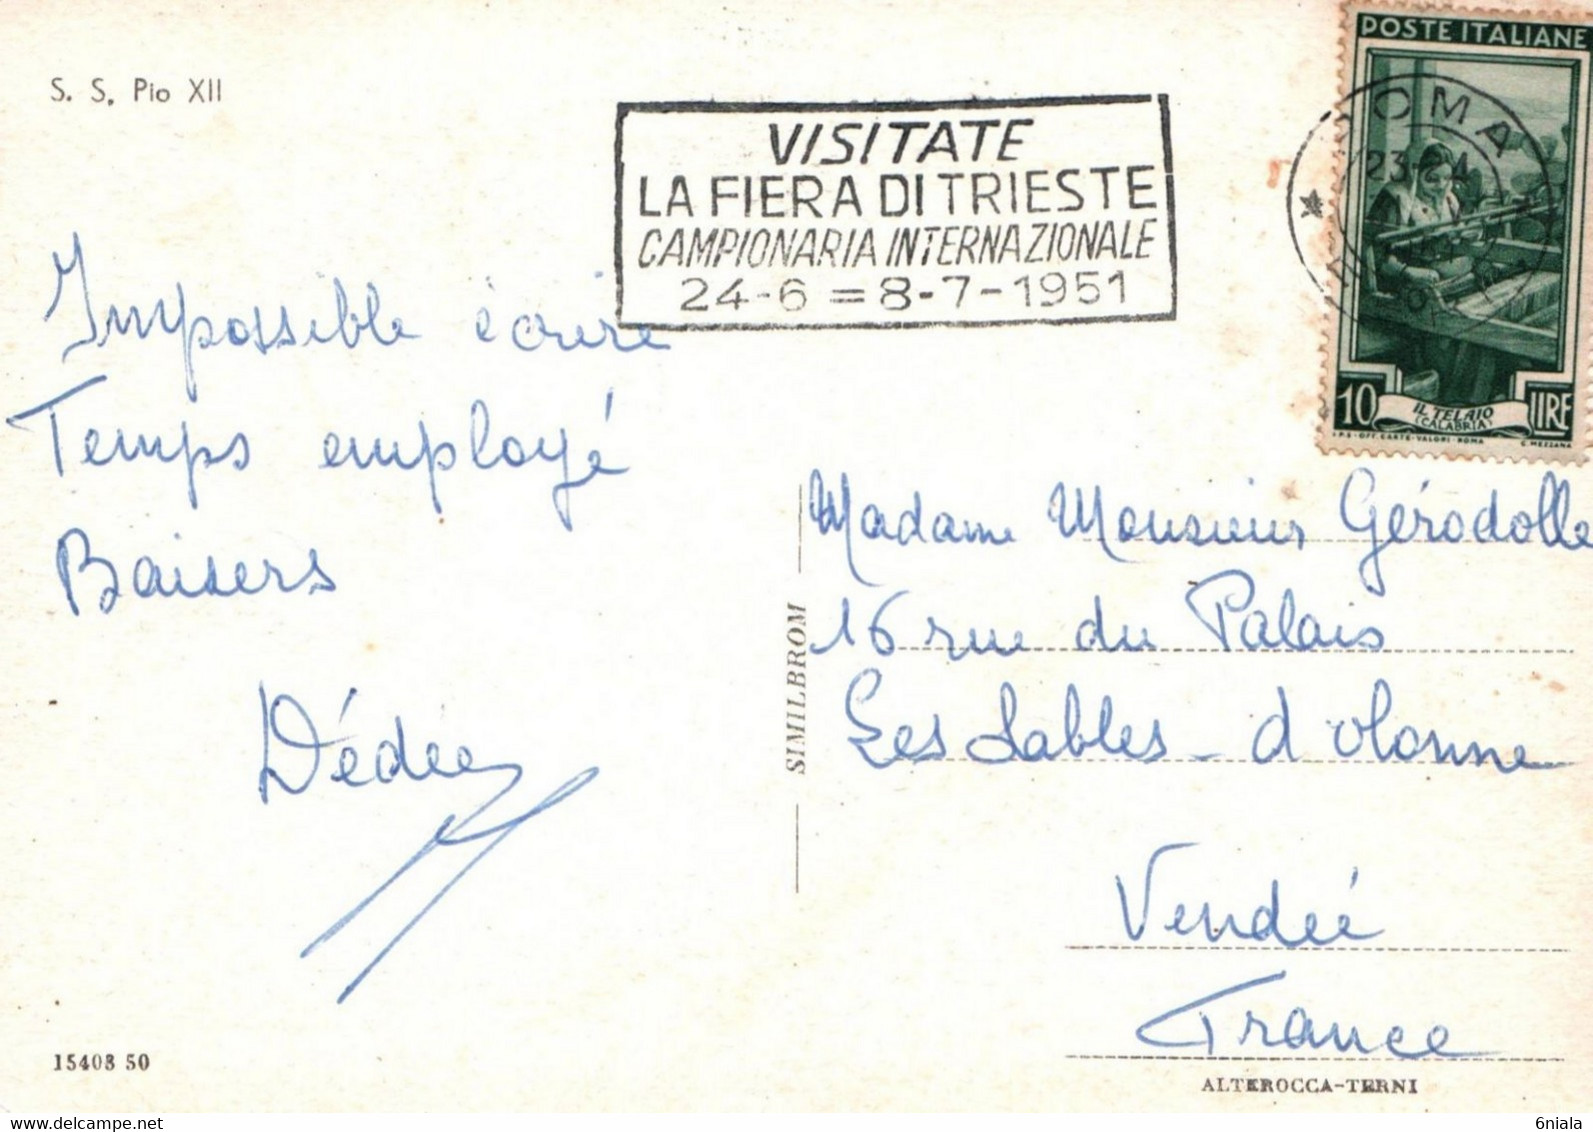 S. S. Pio XII
VISITATE
LA FIERA DI TRIESTE
CAMPIONARIA INTERNAZIONALE
24-6=8-7-1951
POSTE ITALIANE
ROMA
10
IL TELAIO
(CALABRIA)
LIRE
I.P.S-OFF. CARTE-VALORI-ROMA
C. MEZZANA
Impossible écrire
Temps employé
Baisers
Dédée
SIMILBROM
Madame Monsieur Gérodolle
16 rue du Palais
Les Sables-d'olonne
Vendée
France
15408 50
ALTEROCCA-TERNI
delcampe.net
6niala